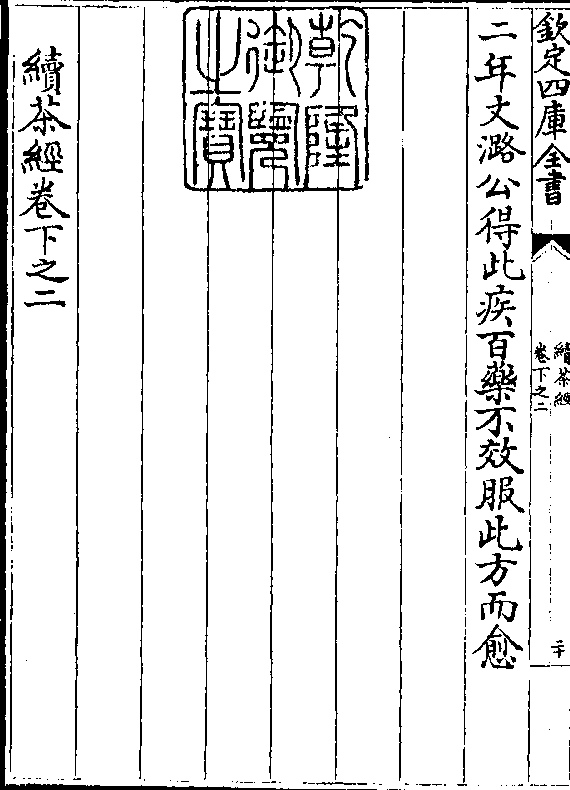 欽定四庫全書
續茶經
卷下之二
二十
二年文潞公得此疾百藥不效服此方而愈
乾隆
御覽
之寶
續茶經卷下之二